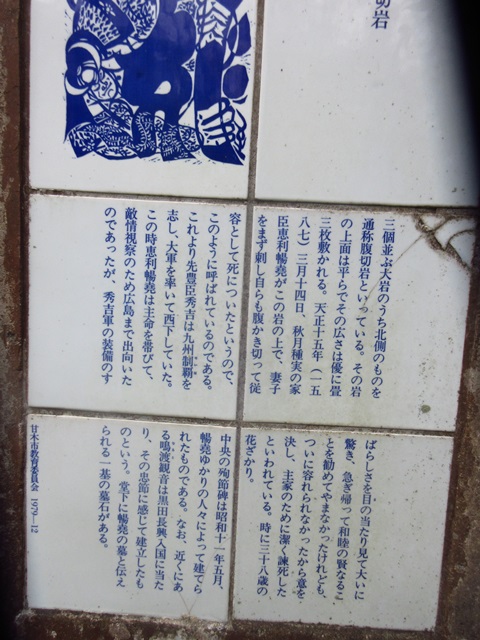 の岩
三個並ぶ大岩のうち北側のものを
通称腹切岩といっている。その岩
の上面は平らでその広さは優に畳
三枚敷かれる。天正十五年（一五
八七）三月十四日、秋月種実の家
臣恵利暢堯がこの岩の上で、妻子
をまず刺し自らも腹かき切って従
容として死についたというので、
このように呼ばれているのである。
これより先豊臣秀吉は九州制覇を
志し、大軍を率いて西下していた。
この時恵利暢堯は主命を帯びて、
敵情視察のため広島まで出向いた
のであったが、秀吉軍の装備のす
ばらしさを目の当たり見て大いに
驚き、急ぎ帰って和睦の賢なるこ
とを勧めてやまなかったけれども、
ついに容れられなかったから意を
決し、主家のために潔く諫死した
といわれている。時に三十八歳の
花ざかり。
中央の殉節碑は昭和十一年五月、
暢堯ゆかりの人々によって建てら
れたものである。なお、近くにあ
る鳴渡観音は黒田長興入国に当た
り、その忠節に感じて建立したも
のという。堂下に暢堯の墓と伝え
られる一基の墓石がある。
甘木市教育委員会 1979―12